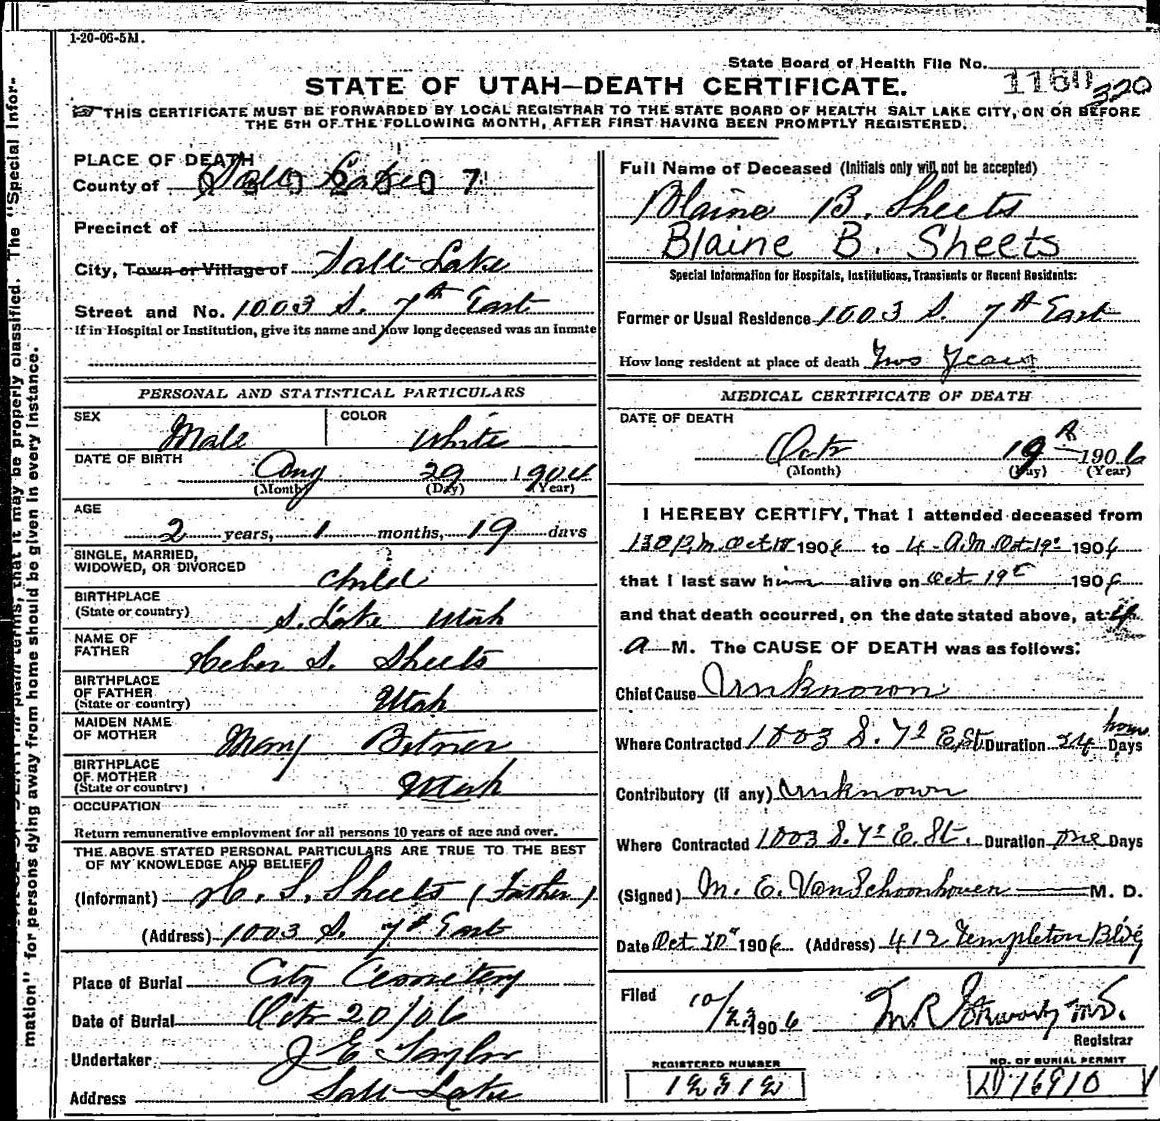 1-20-06-5M.
State Board of Health File No. 1160 320
STATE OF UTAH—DEATH CERTIFICATE.
THIS CERTIFICATE MUST BE FORWARDED BY LOCAL REGISTRAR TO THE STATE BOARD OF HEALTH SALT LAKE CITY, ON OR BEFORE
THE 5TH OF THE FOLLOWING MONTH, AFTER FIRST HAVING BEEN PROMPTLY REGISTERED.
PLACE OF DEATH
County of Salt Lake
Precinct of
City, Town or Village of Salt Lake
Street and No. 1003 S. 7th East
If in Hospital or Institution, give its name and how long deceased was an inmate
PERSONAL AND STATISTICAL PARTICULARS
SEX Male COLOR White
DATE OF BIRTH Aug 29 1904
(Month) (Day) (Year)
AGE
2 years, 1 months, 19 days
SINGLE, MARRIED,
WIDOWED, OR DIVORCED Child
BIRTHPLACE
(State or country) S. Lake Utah
NAME OF
FATHER Heber S. Sheets
BIRTHPLACE
OF FATHER
(State or country) Utah
MAIDEN NAME
OF MOTHER Mary Bitner
BIRTHPLACE
OF MOTHER
(State or country) Utah
OCCUPATION
Return remunerative employment for all persons 10 years of age and over.
THE ABOVE STATED PERSONAL PARTICULARS ARE TRUE TO THE BEST
OF MY KNOWLEDGE AND BELIEF
(Informant) H. S. Sheets (Father)
(Address) 1003 S. 7th East
Place of Burial City Cemetery
Date of Burial Oct 20/06
Undertaker J E Taylor
Address Salt Lake
Full Name of Deceased (Initials only will not be accepted)
Blaine B. Sheets
Blaine B. Sheets
Special Information for Hospitals, Institutions, Transients or Recent Residents:
Former or Usual Residence 1003 S. 7th East
How long resident at place of death Two Years
MEDICAL CERTIFICATE OF DEATH
DATE OF DEATH
Oct 19th 1906
(Month) (Day) (Year)
I HEREBY CERTIFY, That I attended deceased from
130 P.M. Oct 18 1906 to 4 A.M. Oct 19th 1906
that I last saw him alive on Oct 19th 1906
and that death occurred, on the date stated above, at 4
A M. The CAUSE OF DEATH was as follows:
Chief Cause Unknown
Where Contracted 1003 S. 7th E St. Duration 24 hours Days
Contributory (if any) Unknown
Where Contracted 1003 S. 7th E. St. Duration one Days
(Signed) M. E. Van Schoonhoven M. D.
Date Oct 20th 1906 (Address) 412 Templeton Bldg
Filed 10/23 1906
Registrar
REGISTERED NUMBER
NO. OF BURIAL PERMIT
mation" for persons dying away from home should be given in every instance.
terms, that it may be properly classified. The "Special Infor-